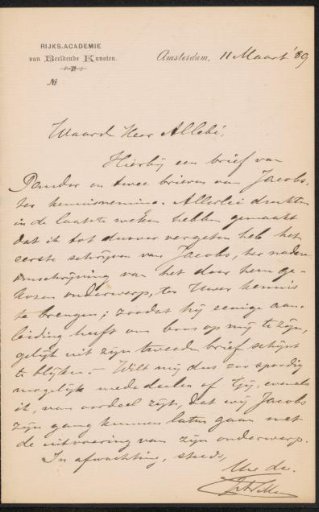 RIJKS-ACADEMIE
van Beeldende Kunsten.
No
Amsterdam, 11 Maart '89
Waarde Heer Allebé,
Hierbij een brief van
en twee brieven van Jacobs,
ter kennisneming. Allerlei drukten
in de laatste weken hebben gemaakt
dat ik tot dusver vergeten heb het
eerste schrijven van Jacobs, ter nadere
omschrijving van het door hem ge-
kozen onderwerp, ter Uwer kennis
te brengen; zoodat hij eenige aan-
leiding heeft om boos op mij te zijn,
gelijk uit zijn tweeden brief schijnt
te blijken. - Wilt mij dus zoo spoedig
mogelijk mededeelen of Gij, evenals
ik, van oordeel zijt, dat wij Jacobs
zijn gang kunnen laten gaan met
de uitvoering van zijn onderwerp.
In afwachting, steeds,
Uw dw.